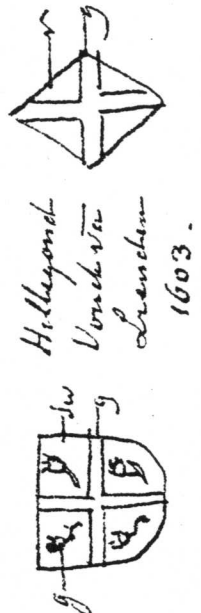 Hillegond
Vonck vā
Lienden
1603.
g
g
g